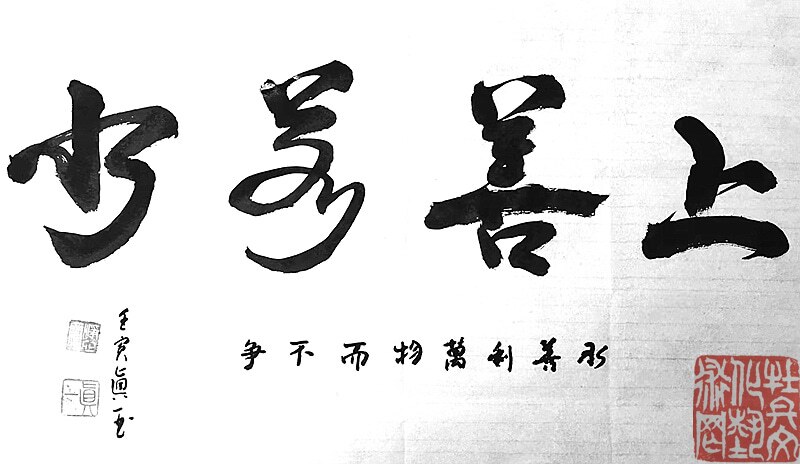 上善若水
水善利萬物而不争
壬寅眞一书